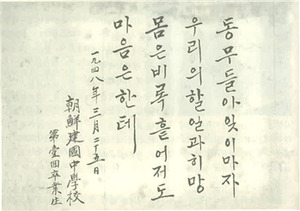 동무들아잇이마자
우리의할일과히망
몸은비록흩어저도
마음은한데
一九四八年三月二十五日
朝鮮建國中學校
第壹回卒業生